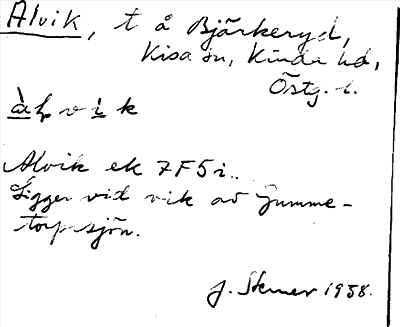 Alvik, t å Bjärkeryd,
Kisa sn, Kinda hd,
Östg. l.
àlvik
Alvik ek 7F5i..
Ligger vid vik av Gumme-
torpsjön.
J. Stener 1958.